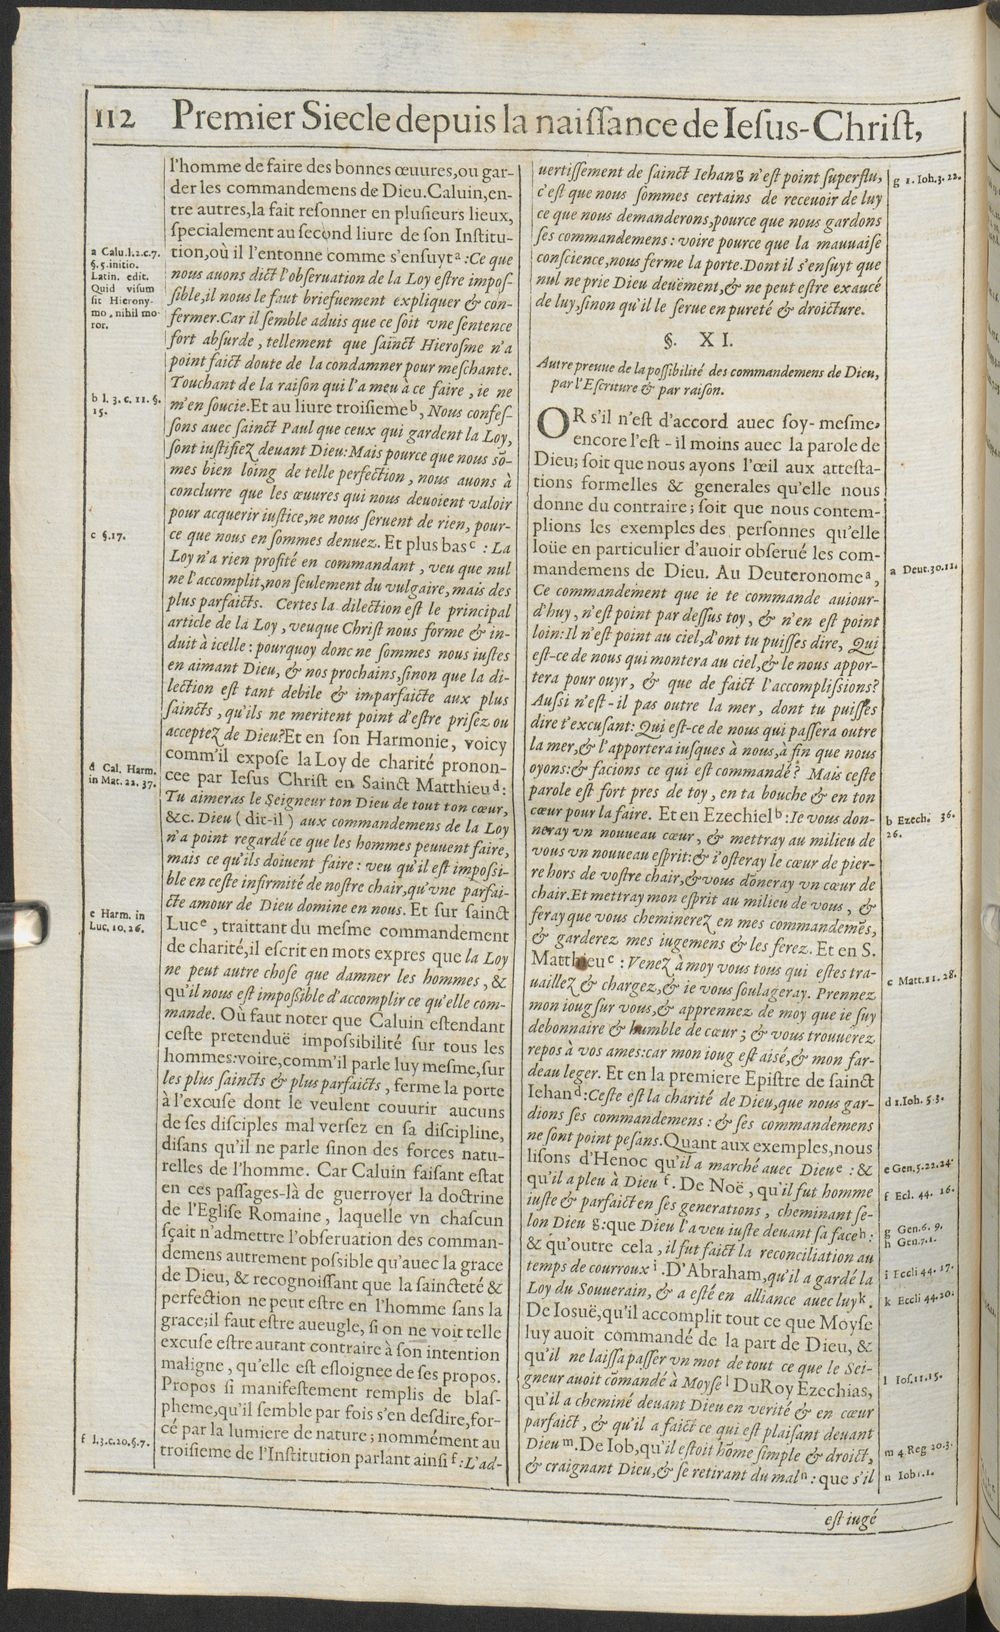 112 Premier Siecle depuis la naiſſance de Ieſus-Chriſt,
l'homme de faire des bonnes œuures, ou gar-
der les commandemens de Dieu. Caluin, en-
tre autres, la fait reſonner en pluſieurs lieux,
ſpecialement au ſecond liure de ſon Inſtitu-
tion, où il l'entonne comme s'enſuyt a : Ce que
nous auons dict l'obſeruation de la Loy eſtre impoſ-
ſible, il nous le faut briefuement expliquer & con-
fermer. Car il ſemble aduis que ce ſoit vne ſentence
fort abſurde, tellement que ſainct Hieroſme n'a
point faict doute de la condamner pour meſchante.
Touchant de la raiſon qui l'a meu à ce faire, ie ne
m'en ſoucie. Et au liure troiſieme b, Nous confeſ-
ſons auec ſainct Paul que ceux qui gardent la Loy,
ſont iuſtifiez deuant Dieu: Mais pource que nous sõ-
mes bien loing de telle perfection, nous auons à
conclurre que les œuures qui nous deuoient valoir
pour acquerir iuſtice, ne nous ſeruent de rien, pour-
ce que nous en ſommes denuez. Et plus bas c : La
Loy n'a rien profité en commandant, veu que nul
ne l'accomplit, non ſeulement du vulgaire, mais des
plus parfaicts. Certes la dilection eſt le principal
article de la Loy, veuque Chriſt nous forme & in-
duit à icelle : pourquoy donc ne ſommes nous iuſtes
en aimant Dieu, & nos prochains, ſinon que la di-
lection eſt tant debile & imparfaicte aux plus
ſaincts, qu'ils ne meritent point d'eſtre priſez ou
acceptez de Dieu? Et en ſon Harmonie, voicy
comm'il expoſe la Loy de charité pronon-
cee par Ieſus Chriſt en Sainct Matthieu d :
Tu aimeras le Seigneur ton Dieu de tout ton cœur,
&c. Dieu (dit-il) aux commandemens de la Loy
n'a point regardé ce que les hommes peuuent faire,
mais ce qu'ils doiuent faire : veu qu'il eſt impoſſi-
ble en ceſte infirmité de noſtre chair, qu'vne parfai-
cte amour de Dieu domine en nous. Et ſur ſainct
Luc e, traittant du meſme commandement
de charité, il eſcrit en mots expres que la Loy
ne peut autre choſe que damner les hommes, &
qu'il nous eſt impoſſible d'accomplir ce qu'elle com-
mande. Où faut noter que Caluin eſtendant
ceſte pretenduë impoſſibilité ſur tous les
hommes: voire, comm'il parle luy meſme, ſur
les plus ſaincts & plus parfaicts, ferme la porte
à l'excuſe dont le veulent couurir aucuns
de ſes diſciples mal verſez en ſa diſcipline,
diſans qu'il ne parle ſinon des forces natu-
relles de l'homme. Car Caluin faiſant eſtat
en ces paſſages-là de guerroyer la doctrine
de l'Egliſe Romaine, laquelle vn chaſcun
ſçait n'admettre l'obſeruation des comman-
demens autrement poſſible qu'auec la grace
de Dieu, & recognoiſſant que la ſaincteté &
perfection ne peut eſtre en l'homme ſans la
grace; il faut eſtre aueugle, ſi on ne voit telle
excuſe eſtre autant contraire à ſon intention
maligne, qu'elle eſt eſloignee de ſes propos.
Propos ſi manifeſtement remplis de blaſ-
pheme, qu'il ſemble par fois s'en deſdire, for-
cé par la lumiere de nature; nommément au
troiſieme de l'Inſtitution parlant ainſi f : L'ad-
a Calu. l. 2. c. 7.
§. 5. initio.
Latin. edit.
Quid viſum
ſit Hierony-
mo, nihil mo-
ror.
b l. 3. c. 11. §.
15.
c §. 17.
d Cal. Harm.
in Mat. 22. 37.
e Harm. in
Luc. 10. 26.
f l. 3. c. 20. §. 7.
uertiſſement de ſainct Iehan g n'eſt point ſuperflu,
c'eſt que nous ſommes certains de receuoir de luy
ce que nous demanderons, pource que nous gardons
ſes commandemens : voire pource que la mauuaiſe
conſcience, nous ferme la porte. Dont il s'enſuyt que
nul ne prie Dieu deuëment, & ne peut eſtre exaucé
de luy, ſinon qu'il le ſerue en pureté & droicture.
§. XI.
Autre preuue de la poſſibilité des commandemens de Dieu,
par l'Eſcriture & par raiſon.
OR s'il n'eſt d'accord auec ſoy-meſme,
encore l'eſt-il moins auec la parole de
Dieu; ſoit que nous ayons l'œil aux atteſta-
tions formelles & generales qu'elle nous
donne du contraire; ſoit que nous contem-
plions les exemples des perſonnes qu'elle
loüe en particulier d'auoir obſerué les com-
mandemens de Dieu. Au Deuteronome a,
Ce commandement que ie te commande auiour-
d'huy, n'eſt point par deſſus toy, & n'en eſt point
loin: Il n'eſt point au ciel, d'ont tu puiſſes dire, Qui
eſt-ce de nous qui montera au ciel, & le nous appor-
tera pour ouyr, & que de faict l'accompliſſions?
Auſſi n'eſt-il pas outre la mer, dont tu puiſſes
dire t'excuſant: Qui eſt-ce de nous qui paſſera outre
la mer, & l'apportera iuſques à nous, à fin que nous
oyons: & facions ce qui eſt commandé? Mais ceſte
parole eſt fort pres de toy, en ta bouche & en ton
cœur pour la faire. Et en Ezechiel b : Ie vous don-
neray vn nouueau cœur, & mettray au milieu de
vous vn nouueau eſprit: & i'oſteray le cœur de pier-
re hors de voſtre chair, & vous dõneray vn cœur de
chair. Et mettray mon eſprit au milieu de vous, &
feray que vous cheminerez en mes commandemẽs,
& garderez mes iugemens & les ferez. Et en S.
Matthieu c : Venez à moy vous tous qui eſtes tra-
uaillez & chargez, & ie vous ſoulageray. Prennez
mon ioug ſur vous, & apprennez de moy que ie ſuy
debonnaire & humble de cœur; & vous trouuerez
repos à vos ames: car mon ioug eſt aisé, & mon far-
deau leger. Et en la premiere Epiſtre de ſainct
Iehan d : Ceſte eſt la charité de Dieu, que nous gar-
dions ſes commandemens : & ſes commandemens
ne ſont point peſans. Quant aux exemples, nous
liſons d'Henoc qu'il a marché auec Dieu e : &
qu'il a pleu à Dieu f. De Noë, qu'il fut homme
iuſte & parfaict en ſes generations, cheminant ſe-
lon Dieu g: que Dieu l'a veu iuſte deuant ſa face h :
& qu'outre cela, il fut faict la reconciliation au
temps de courroux i. D'Abraham, qu'il a gardé la
Loy du Souuerain, & a eſté en alliance auec luy k.
De Ioſuë, qu'il accomplit tout ce que Moyſe
luy auoit commandé de la part de Dieu, &
qu'il ne laiſſa paſſer vn mot de tout ce que le Sei-
gneur auoit cõmandé à Moyſe l Du Roy Ezechias,
qu'il a cheminé deuant Dieu en verité & en cœur
parfaict, & qu'il a faict ce qui eſt plaiſant deuant
Dieu m. De Iob, qu'il eſtoit hõme ſimple & droict,
& craignant Dieu, & ſe retirant du mal n : que s'il
g 1. Ioh. 3. 22.
a Deut. 30. 11.
b Ezech. 36.
26.
c Matt. 11. 28.
d 1. Ioh. 5. 3.
e Gen. 5. 22. 24.
f Ecl. 44. 16.
g Gen. 6. 9.
h Gen. 7. 1.
i Eccli 44. 17.
k Eccli 44. 20.
l Ioſ. 11. 15.
m 4. Reg 20. 3.
n Iob 1. 1.
eſt iugé